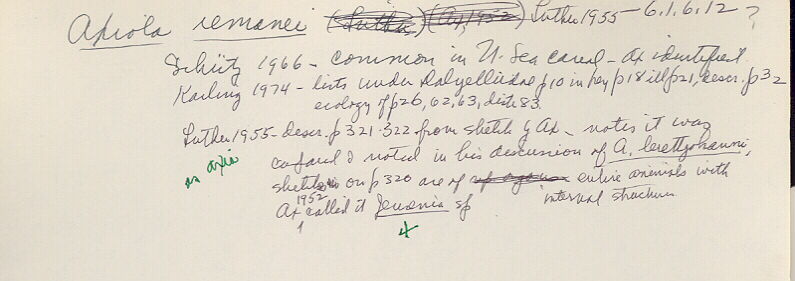 Axiola remanei (Luther) (Ax, 1952) Luther 1955 - 6.1.6.12 ?
Schütz 1966 - common in N. Sea canal - Ax identified
Karling 1974 - lists under Dalyelliidae p10 in key p18 ill p21, descr. p32
ecology of p26, 62, 63, dist 83
Luther 1955 - descr. p 321-322 from sketch by Ax - notes it was
as Axia
confused & noted in his discussion of A. luetjohanni,
sketches on p 320 are of entire animals with
1952
internal structure
Ax called it Jensenia sp
1
4